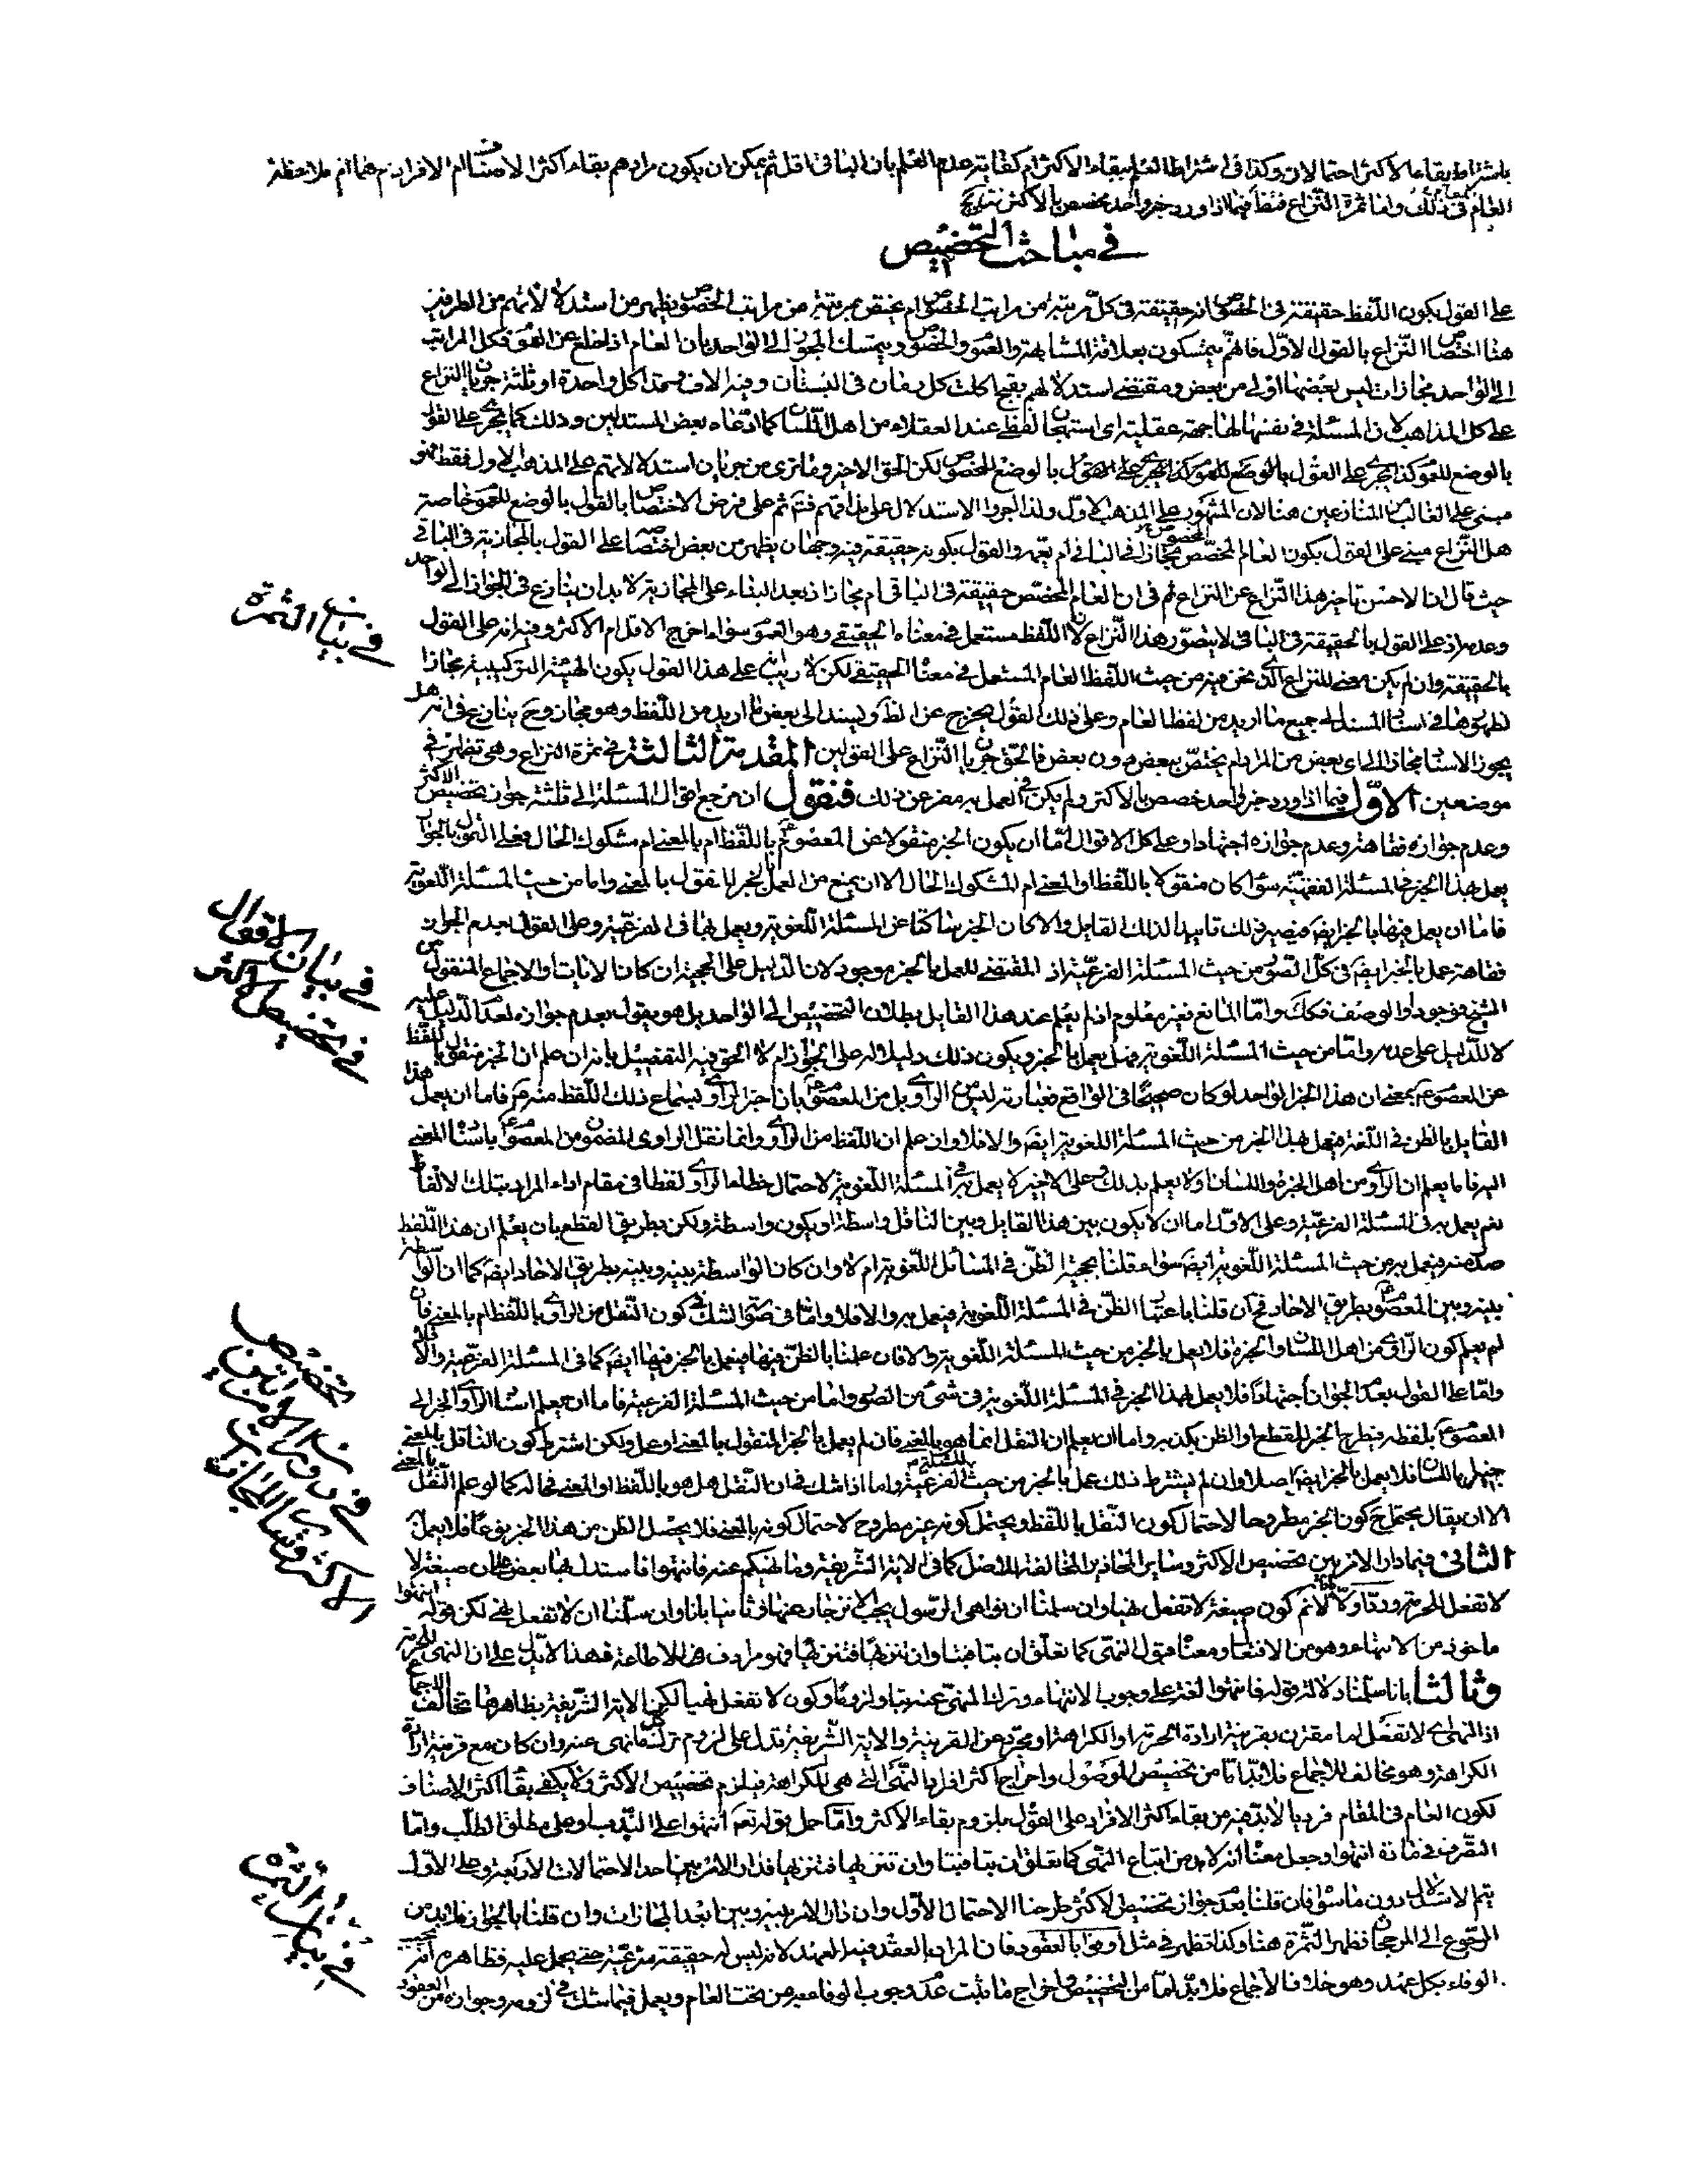 باشتراط بقاء الاكثر احتمالان وكذا في اشتراط العلم ببقاء الاكثر ام كفاية عدم العلم بان الباقي اقل ثم يمكن ان يكون مرادهم بقاء اكثر الاصناف ام الافراد ثم هما ام ملاحظة
العام في ذلك واما ثمرة النزاع فتظهر فيما اذا ورد خبر واحد مخصص بالاكثر
في مباحث التخصيص
على القول بكون اللفظ حقيقة في الخصوص انه حقيقة في كل مرتبة من مراتب الخصوص ام يختص بمرتبة من مراتب الخصوص يظهر من استدلالاتهم من الطرفين
هنا اختصاص النزاع بالقول الاول فانهم يتمسكون بعلاقة المشابهة والعموم والخصوص ويتمسك المجوز الى الواحد بان العام اذا خلع عن العموم فكل المراتب
الى الواحد مجازات ليس بعضها اولى من بعض ومقتضى استدلالهم بقبح اكلت كل رمان في البستان وفيه الاف وقد اكل واحدة او ثلثة جريان النزاع
على كل المذاهب لان المسئلة في نفسها لها جهة عقلية اى استهجان اللفظ عند العقلاء من اهل اللسان كما ادعاه بعض المستدلين وذلك كما يجرى على القول
بالوضع للعموم كذا يجرى على القول بالوضع للخصوص لكن الحق الاخير وما ترى من جريان استدلالاتهم على المذهب الاول فقط فهو
مبنى على الغالب من المتنازعين هنا لان المشهور على المذهب الاول ولذا اجروا الاستدلال على مذاقهم ثم على فرض الاختصاص بالقول بالوضع للعموم خاصة
هل النزاع مبنى على القول بكون العام المخصص مجازا في الباقي ام يعمه والقول بكونه حقيقة فيه وجهان يظهر من بعض اختصاصه على القول بالمجازية في الباقي
حيث قال ان الاحسن تاخير هذا النزاع عن النزاع في ان العام المخصص حقيقة في الباقي ام مجاز اذ بعد البناء على المجازية لا بد ان ينازع في الجواز الى الواحد
وعدمه اذ على القول بالحقيقة في الباقي لا يتصور هذا النزاع لان اللفظ مستعمل في معناه الحقيقي وهو العموم سواء اخرج الاقل ام الاكثر وفيه انه على القول
بالحقيقة وان لم يكن معنى للنزاع الذى نحن فيه من حيث اللفظ العام المستعمل في معناه الحقيقي لكن لا ريب على هذا القول بكون الهيئة التركيبية مجازا
في بيان الثمرة
يجوز الاسناد مجازا الى اى بعض من المراد ام يختص ببعض دون بعض فالحق جريان النزاع على القولين المقدمة الثالثة في ثمرة النزاع وهى تظهر في
موضعين الاول فيما اذا ورد خبر واحد خصص بالاكثر ولم يكن في العمل به مفر عن ذلك فنقول ان مرجع اقوال المسئلة الى ثلثة جواز تخصيص الاكثر
وعدم جوازه فقاهة وعدم جوازه اجتهادا وعلى كل الاقوال اما ان يكون الخبر منقولا عن المعصوم باللفظ ام بالمعنى ام مشكوك الحال فعلى القول بالجواز
يعمل بهذا الخبر في المسئلة الفقهية سواء كان منقولا باللفظ او المعنى ام المشكوك الحال الا ان يمنع من العمل بالخبر المنقول بالمعنى واما من حيث المسئلة اللغوية
فاما ان يعمل فيها بالخبر ايضا فيصير ذلك تاييدا لذلك القايل والا كان الخبر ساكتا عن المسئلة اللغوية ويعمل بها في الفرعية وعلى القول بعدم الجواز
في بيان الاقوال
في تخصيص الاكثر
فقاهة عمل بالخبر ايضا في كل الصور من حيث المسئلة الفرعية اذ المقتضى للعمل بالخبر موجود لان الدليل على الحجية ان كان الايات والاجماع المنقول من
الشيخ فموجود او الوصف فكك واما المانع فغير معلوم اذ لم يعلم عند هذا القايل بطلان التخصيص الى الواحد بل هو يقول بعدم جوازه لعدم الدليل عليه
لا للدليل على عدمه واما من حيث المسئلة اللغوية فهل يعمل بالخبر ويكون ذلك دليلا له على الجواز ام لا الحق فيه التفصيل بانه ان علم ان الخبر منقول باللفظ
عن المعصوم بمعنى ان هذا الخبر الواحد لو كان صحيحا في الواقع فعبارته ليس من الراوى بل من المعصوم بان اخبر الراوى بسماع ذلك اللفظ منه فاما ان يعمل هذا
القايل بالظن في اللغة فيعمل بهذا الخبر من حيث المسئلة اللغوية ايضا والا فلا وان علم ان اللفظ من الراوى وانما نقل الراوى المضمون من المعصوم باسناد المعنى
اليه فاما يعلم ان الراوى من اهل الخبرة واللسان او لا يعلم بذلك وعلى الاخير لا يعمل به في المسئلة اللغوية لاحتمال خطاء الراوى لفظا في مقام اداء المراد بتلك الالفاظ
نعم يعمل به في المسئلة الفرعية وعلى الاول اما ان لا يكون بين هذا القايل وبين الناقل واسطة او يكون واسطة ولكن بطريق القطع بان يعلم ان هذا اللفظ
صدر منه فيعمل به من حيث المسئلة اللغوية ايضا سواء قلنا بحجية الظن في المسائل اللغوية ام لا وان كان الواسطة بينه وبينه بطريق الاحاد ايضا كما ان الواسطة
بينه وبين المعصوم بطريق الاحاد فح ان قلنا باعتبار الظن في المسئلة اللغوية فيعمل به والا فلا واما في صورة الشك في كون النقل من الراوى باللفظ ام بالمعنى فان
لم يعلم كون الراوى من اهل اللسان والخبرة فلا يعمل بالخبر من حيث المسئلة اللغوية والا فان علمنا بالظن فيها فيعمل بالخبر فيها ايضا كما في المسئلة الفرعية والا فلا
واما على القول بعدم الجواز اجتهادا فلا يعمل بهذا الخبر في المسئلة اللغوية في شئ من الصور واما من حيث المسئلة الفرعية فاما ان يعلم اسناد الراوى الخبر الى
المعصوم بلفظه فيطرح الخبر للقطع او الظن بكذبه واما ان يعلم ان النقل انما هو بالمعنى فان لم يعمل بالخبر المنقول بالمعنى او عمل ولكن اشترط كون الناقل بالمعنى
تخصيص
في دوران الامر بين
الاكثر وساير المجازات
خبيرا باللسان فلا يعمل بالخبر ايضا اصلا وان لم يشترط ذلك عمل بالخبر من حيث المسئلة الفرعية واما اذا شك في ان النقل هل هو باللفظ او المعنى فحاله كما لو علم النقل بالمعنى
الا ان يقال يحتمل ح كون الخبر مطروحا لاحتمال كون النقل باللفظ ويحتمل كونه غير مطروح لاحتمال كونه بالمعنى فلا يحصل الظن من هذا الخبر نوعا فلا يعمل
الثاني فيما دار الامر بين تخصيص الاكثر وساير المحاذير المخالفة للاصل كما في الاية الشريفة وما نهيكم عنه فانتهوا فاستدل بها بعض على ان صيغة لا
لا تفعل للحرمة ورد اولا لا نم كون صيغة لا تفعل نهيا وان سلمنا ان نواهى الرسول يجب الانزجار عنها وثانيا بانا وان سلمنا ان لا تفعل نهى لكن قوله انتهوا
ماخوذ من الانتهاء وهو من الافتعال ومعناه قبول النهى
وثالثا بانا سلمنا دلالة قوله فانتهوا لغة على وجوب الانتهاء وترك المنهى عنه وكون لا تفعل نهيا لكن الاية الشريفة بظاهرها تخالف الاجماع
اذ النهى اى لا تفعل اما مقترن بقرينة ارادة الحرمة او الكراهة او مجرد عن القرينة والاية الشريفة تدل على لزوم ترك كل ما نهى عنه وان كان مع قرينة ارادة
الكراهة وهو مخالف للاجماع فلا بد اما من تخصيص الموصول واخراج اكثر افراد النهى التى هى للكراهة فيلزم تخصيص الاكثر ولا يكفى بقاء اكثر الاصناف
لكون العام في المقام فرديا لا بد فيه من بقاء اكثر الافراد على القول بلزوم بقاء الاكثر واما حمل قوله تعالى انتهوا على الندب او على مطلق الطلب واما
التصرف في مادة انتهوا وجعل معناه فدار الامر بين احد الاحتمالات الاربعة وعلى الاول
يتم الاستدلال دون ما سواه فان قلنا بعدم جواز تخصيص الاكثر طرحنا الاحتمال الاول وان دار الامر بينه وبين ابعد المجازات وان قلنا بالجواز فلا بد من
في بيان الثمرة
الرجوع الى المرجحات فظهر الثمرة هنا وكذا تظهر في مثل اوفوا بالعقود فان المراد بالعقد فيه العهد لانه ليس له حقيقة شرعية حتى يحمل عليه فظاهره انه يجب
الوفاء بكل عهد وهو خلاف الاجماع فلا بد اما من التخصيص واخراج ما ثبت عدم وجوب الوفاء به من تحت العام ويعمل فيما شك في لزومه وجوازه من العقود